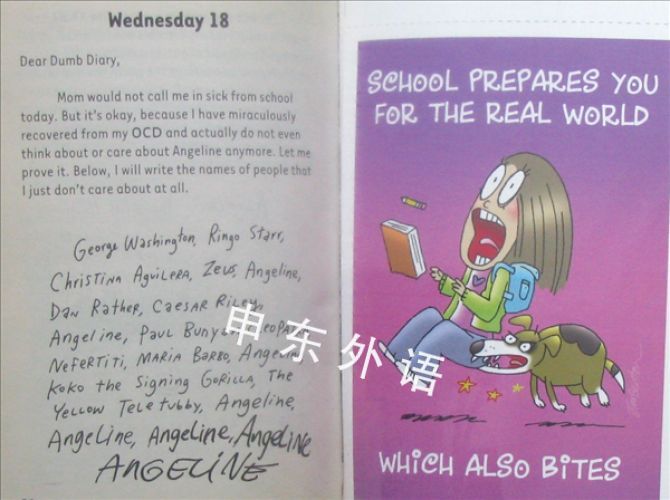 Wednesday 18
Dear Dumb Diary,
Mom would not call me in sick from school
today. But it's okay, because I have miraculously
recovered from my OCD and actually do not even
think about or care about Angeline anymore. Let me
prove it. Below, I will write the names of people that
I just don't care about at all.
George Washington, Ringo Starr,
Christina Aguilera, Zeus, Angeline,
Dan Rather, Caesar Riley,
Angeline, Paul
Nefertiti, Maria Barbo,
Koko the Signing Gorilla, The
Yellow Teletubby, Angeline,
Angeline, Angeline, Angeline
ANGELINE
SCHOOL PREPARES YOU
FOR THE REAL WORLD
WHICH ALSO BITES
申东外语